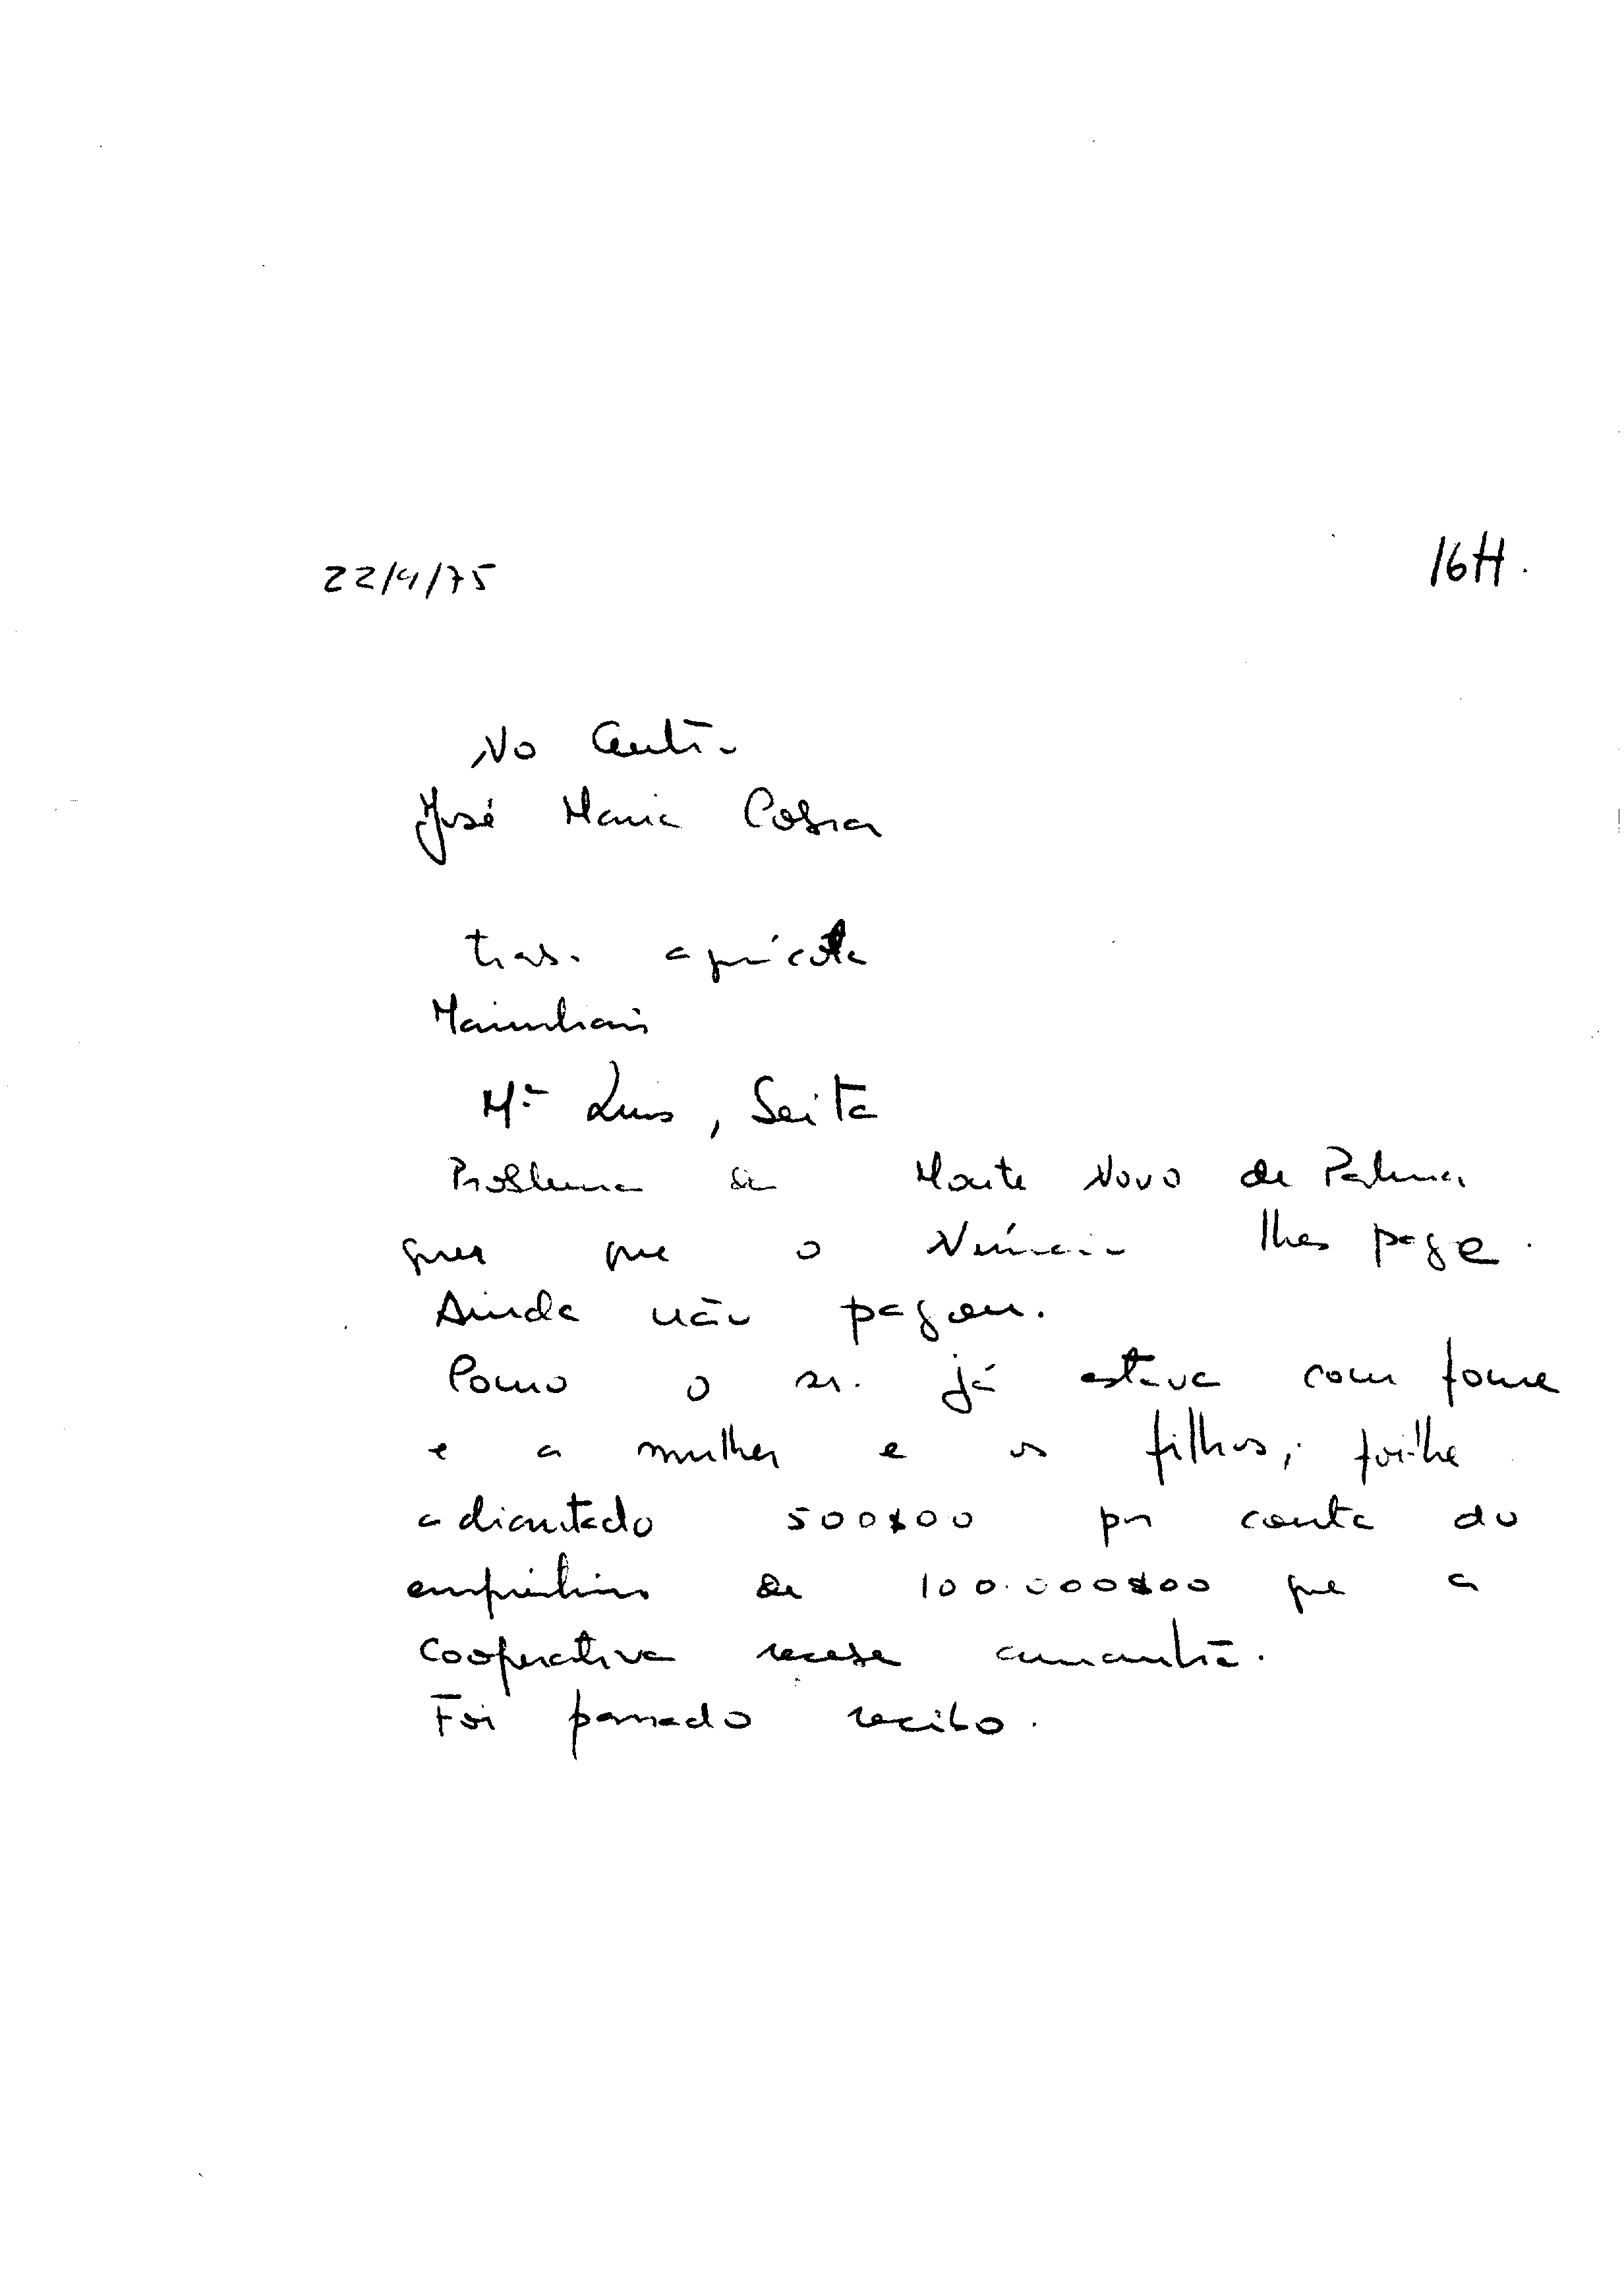 22/4/75
16H.
No Centro
José Maria Cobra
trab. agrícola
Marinhais
Mª Luís, Seita
Problema de Monte Novo de Palma
quer que o Núncio lhes page.
Ainda não pagou.
Como o sr. já estava com fome
e a mulher e os filhos, foi-lhe
adiantado 500$00 por conta do
empréstimo de 100.000$00 que a
Cooperativa recebe amanhã.
Foi passado recibo.